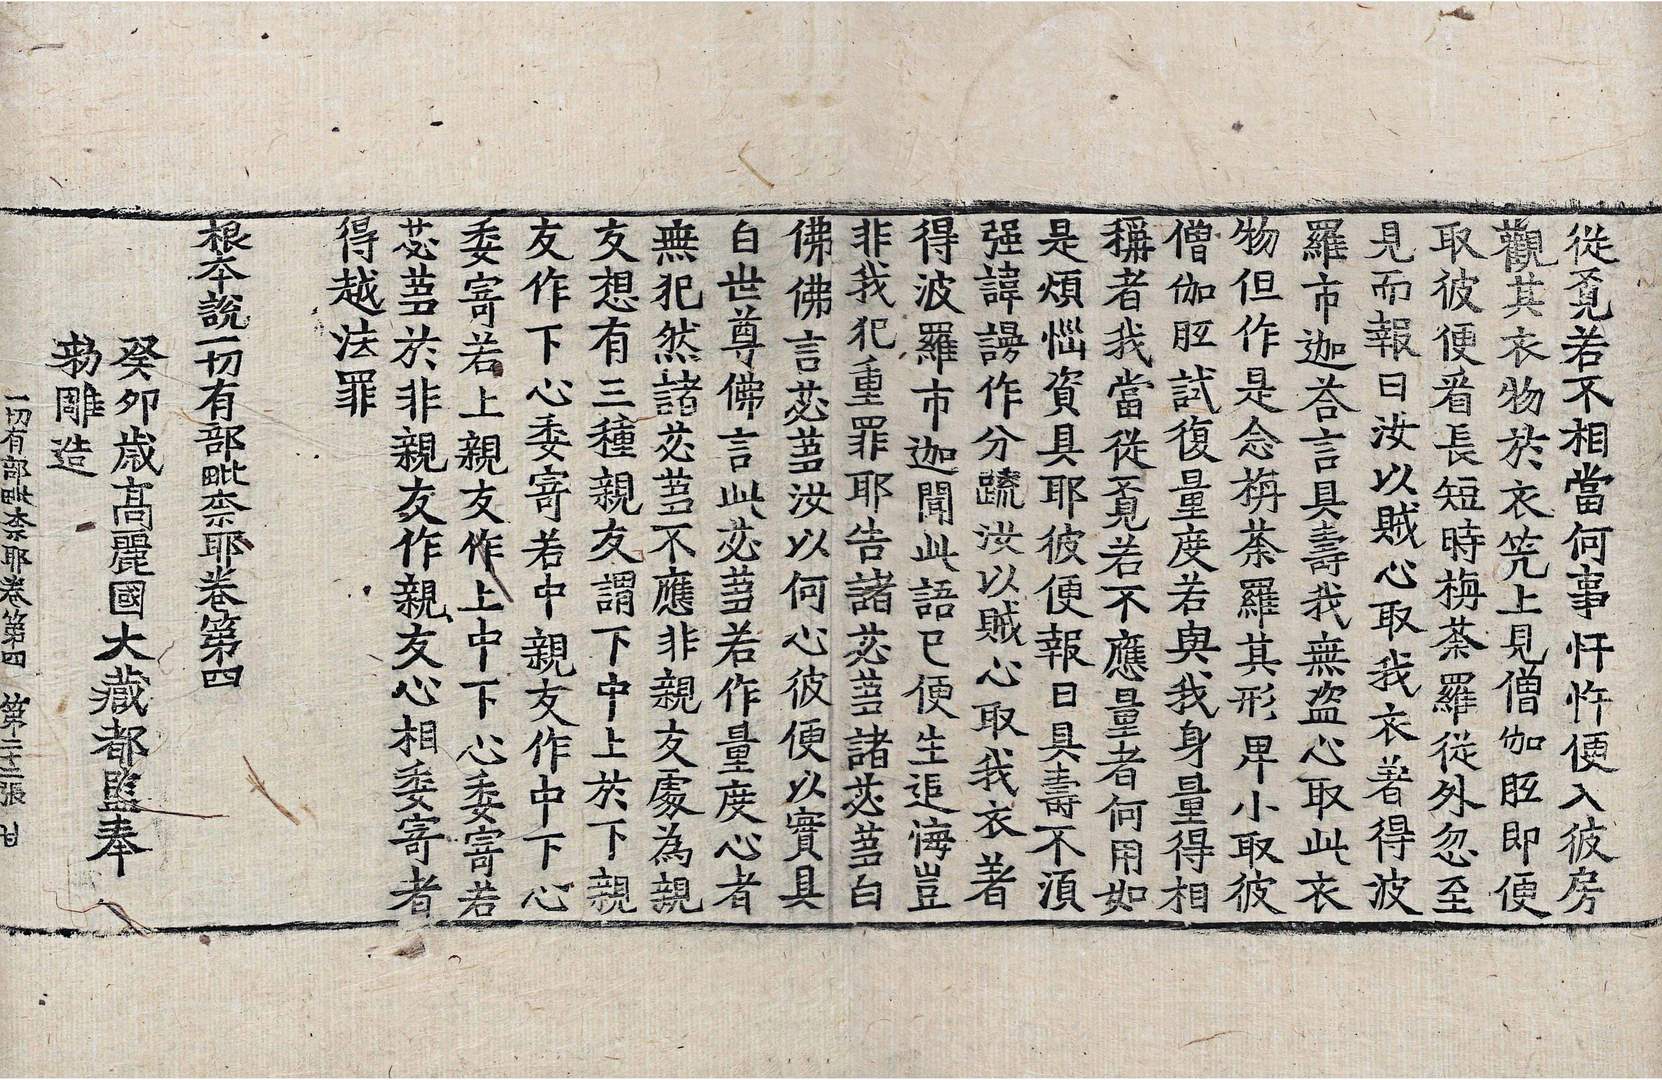 從覔若不相當何事忓忤便入彼房
觀其衣物於衣笐上見僧伽胝即便
取彼便看長短時栴荼羅從外忽至
見而報曰汝以賊心取我衣著得波
羅市迦荅言具壽我無盜心取此衣
物但作是念栴荼羅其形卑小取彼
僧伽胝試復量度若與我身量得相
稱者我當從覔若不應量者何用如
是煩惱資具耶彼便報曰具壽不須
强諱謗作分䟽汝以賊心取我衣著
得波羅市迦聞此語已便生追悔豈
非我犯重罪耶告諸苾芻諸苾芻白
佛佛言苾芻汝以何心彼便以實具
白世尊佛言此苾芻若作量度心者
無犯然諸苾芻不應非親友處為親
友想有三種親友謂下中上於下親
友作下心委寄若中親友作中下心
委寄若上親友作上中下心委寄若
苾芻於非親友作親友心相委寄者
得越法罪
根本說一切有部毗奈耶卷第四
癸卯歲高麗國大藏都監奉
勑雕造
一切有部毗奈耶卷第四 第二十二張 甘